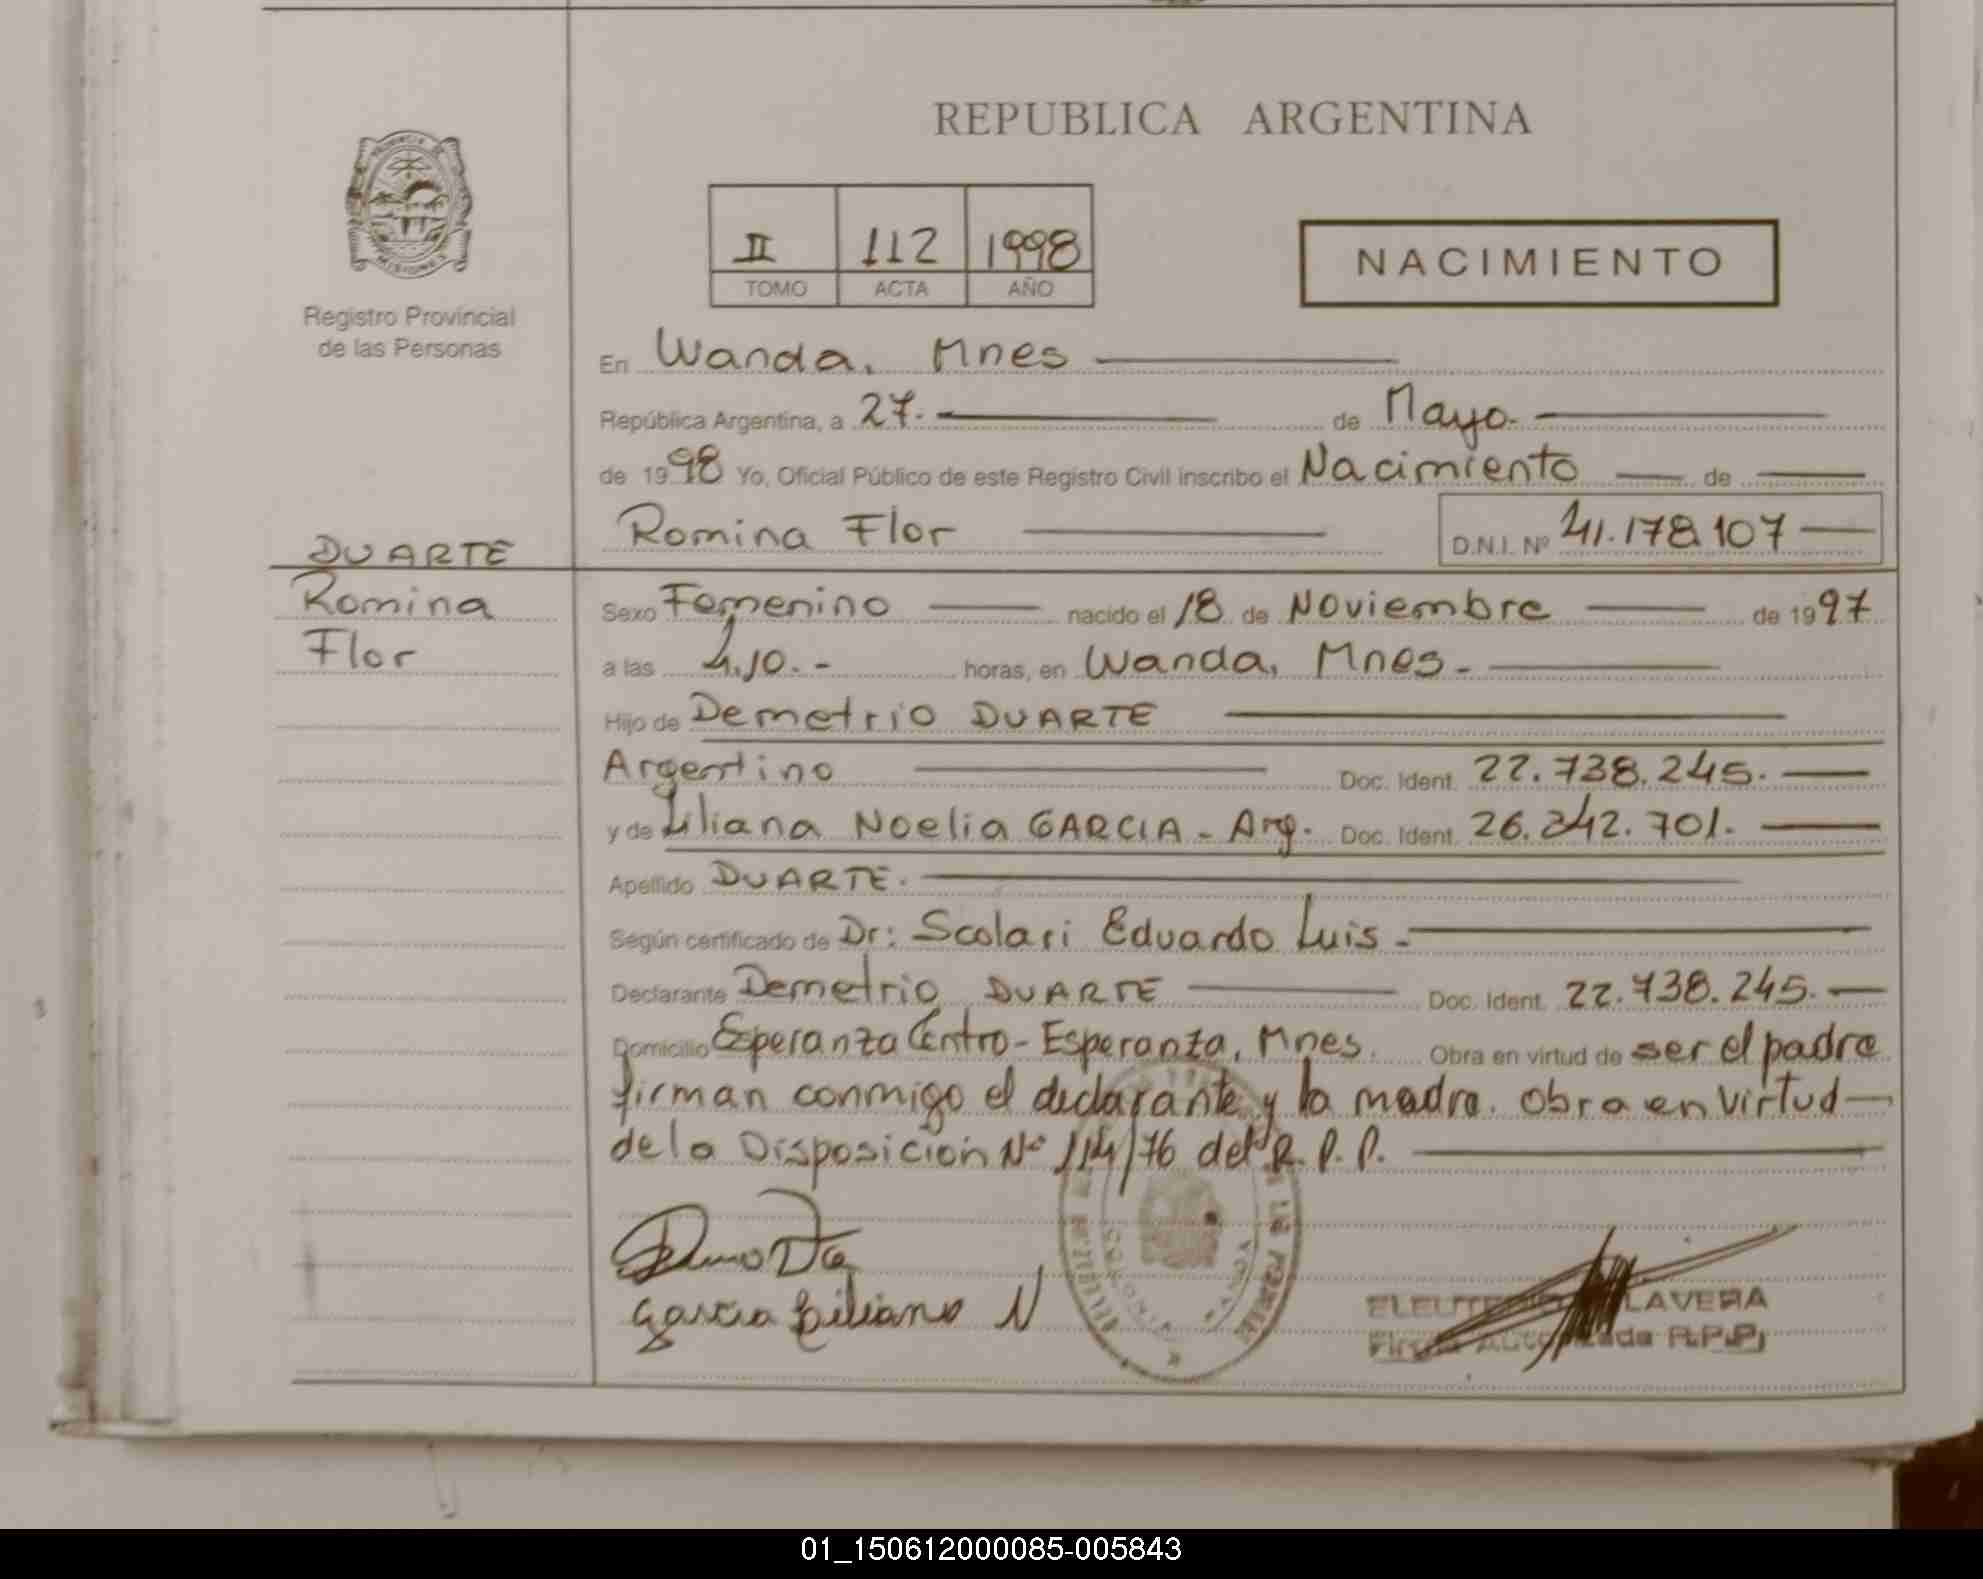 REPUBLICA ARGENTINA
PROVINCIA DE
MISIONES
Registro Provincial
de las Personas
II 112 1998
TOMO ACTA AÑO
NACIMIENTO
En Wanda. Mnes
República Argentina, a 27. de Mayo.
de 1998 Yo, Oficial Público de este Registro Civil inscribo el Nacimiento de
Romina Flor D.N.I. Nº 41.178.107
DUARTE
Romina
Flor
Sexo Femenino nacido el 18 de Noviembre de 1997
a las 4,10.- horas, en Wanda, Mnes.
Hijo de Demetrio DUARTE
Argentino Doc. Ident. 22.738.245.
y de Liliana Noelia GARCIA - Arg. Doc. Ident. 26.242.701.
Apellido DUARTE.
Según certificado de Dr: Scolari Eduardo Luis.
Declarante Demetrio DUARTE Doc. Ident. 22.738.245.
Domicilio Esperanza Centro - Esperanza, Mnes. Obra en virtud de ser el padre
firman conmigo el declarante y la madre. Obra en virtud
de la Disposición Nº 114/76 del R.P.P.
Garcia Liliana N
Firma Autorizada R.P.P.
01_150612000085-005843